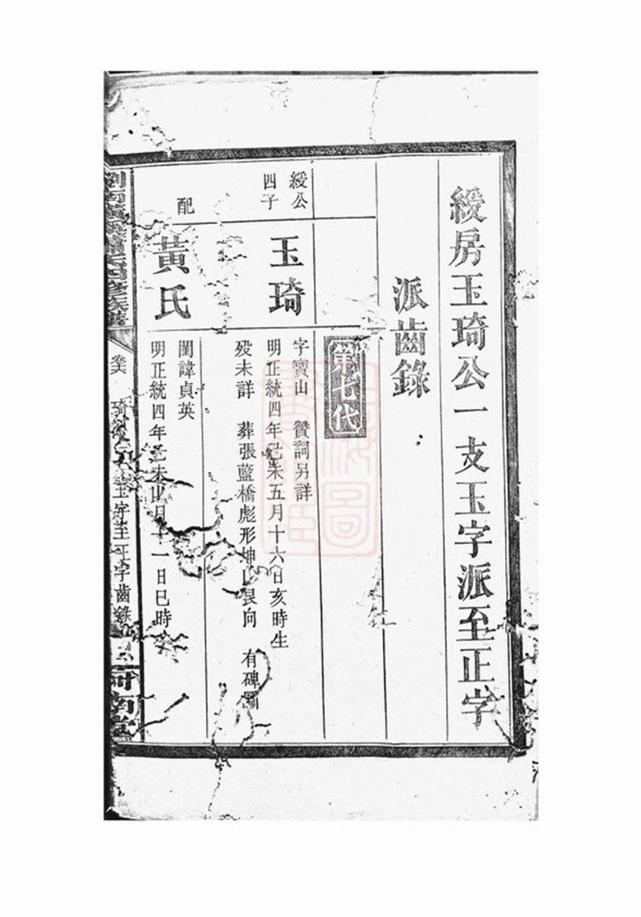 綬房玉琦公一支玉字派至正字
派齒錄
第七代
綬公
四子
玉琦
字寶山 贊詞另詳
明正統四年己未五月十六日亥時生
歿未詳 葬張藍橋彪形坤山艮向 有碑
配
黃氏
閨諱貞英
明正統四年己未 月十一日巳時
玉字至正字齒錄
河南堂